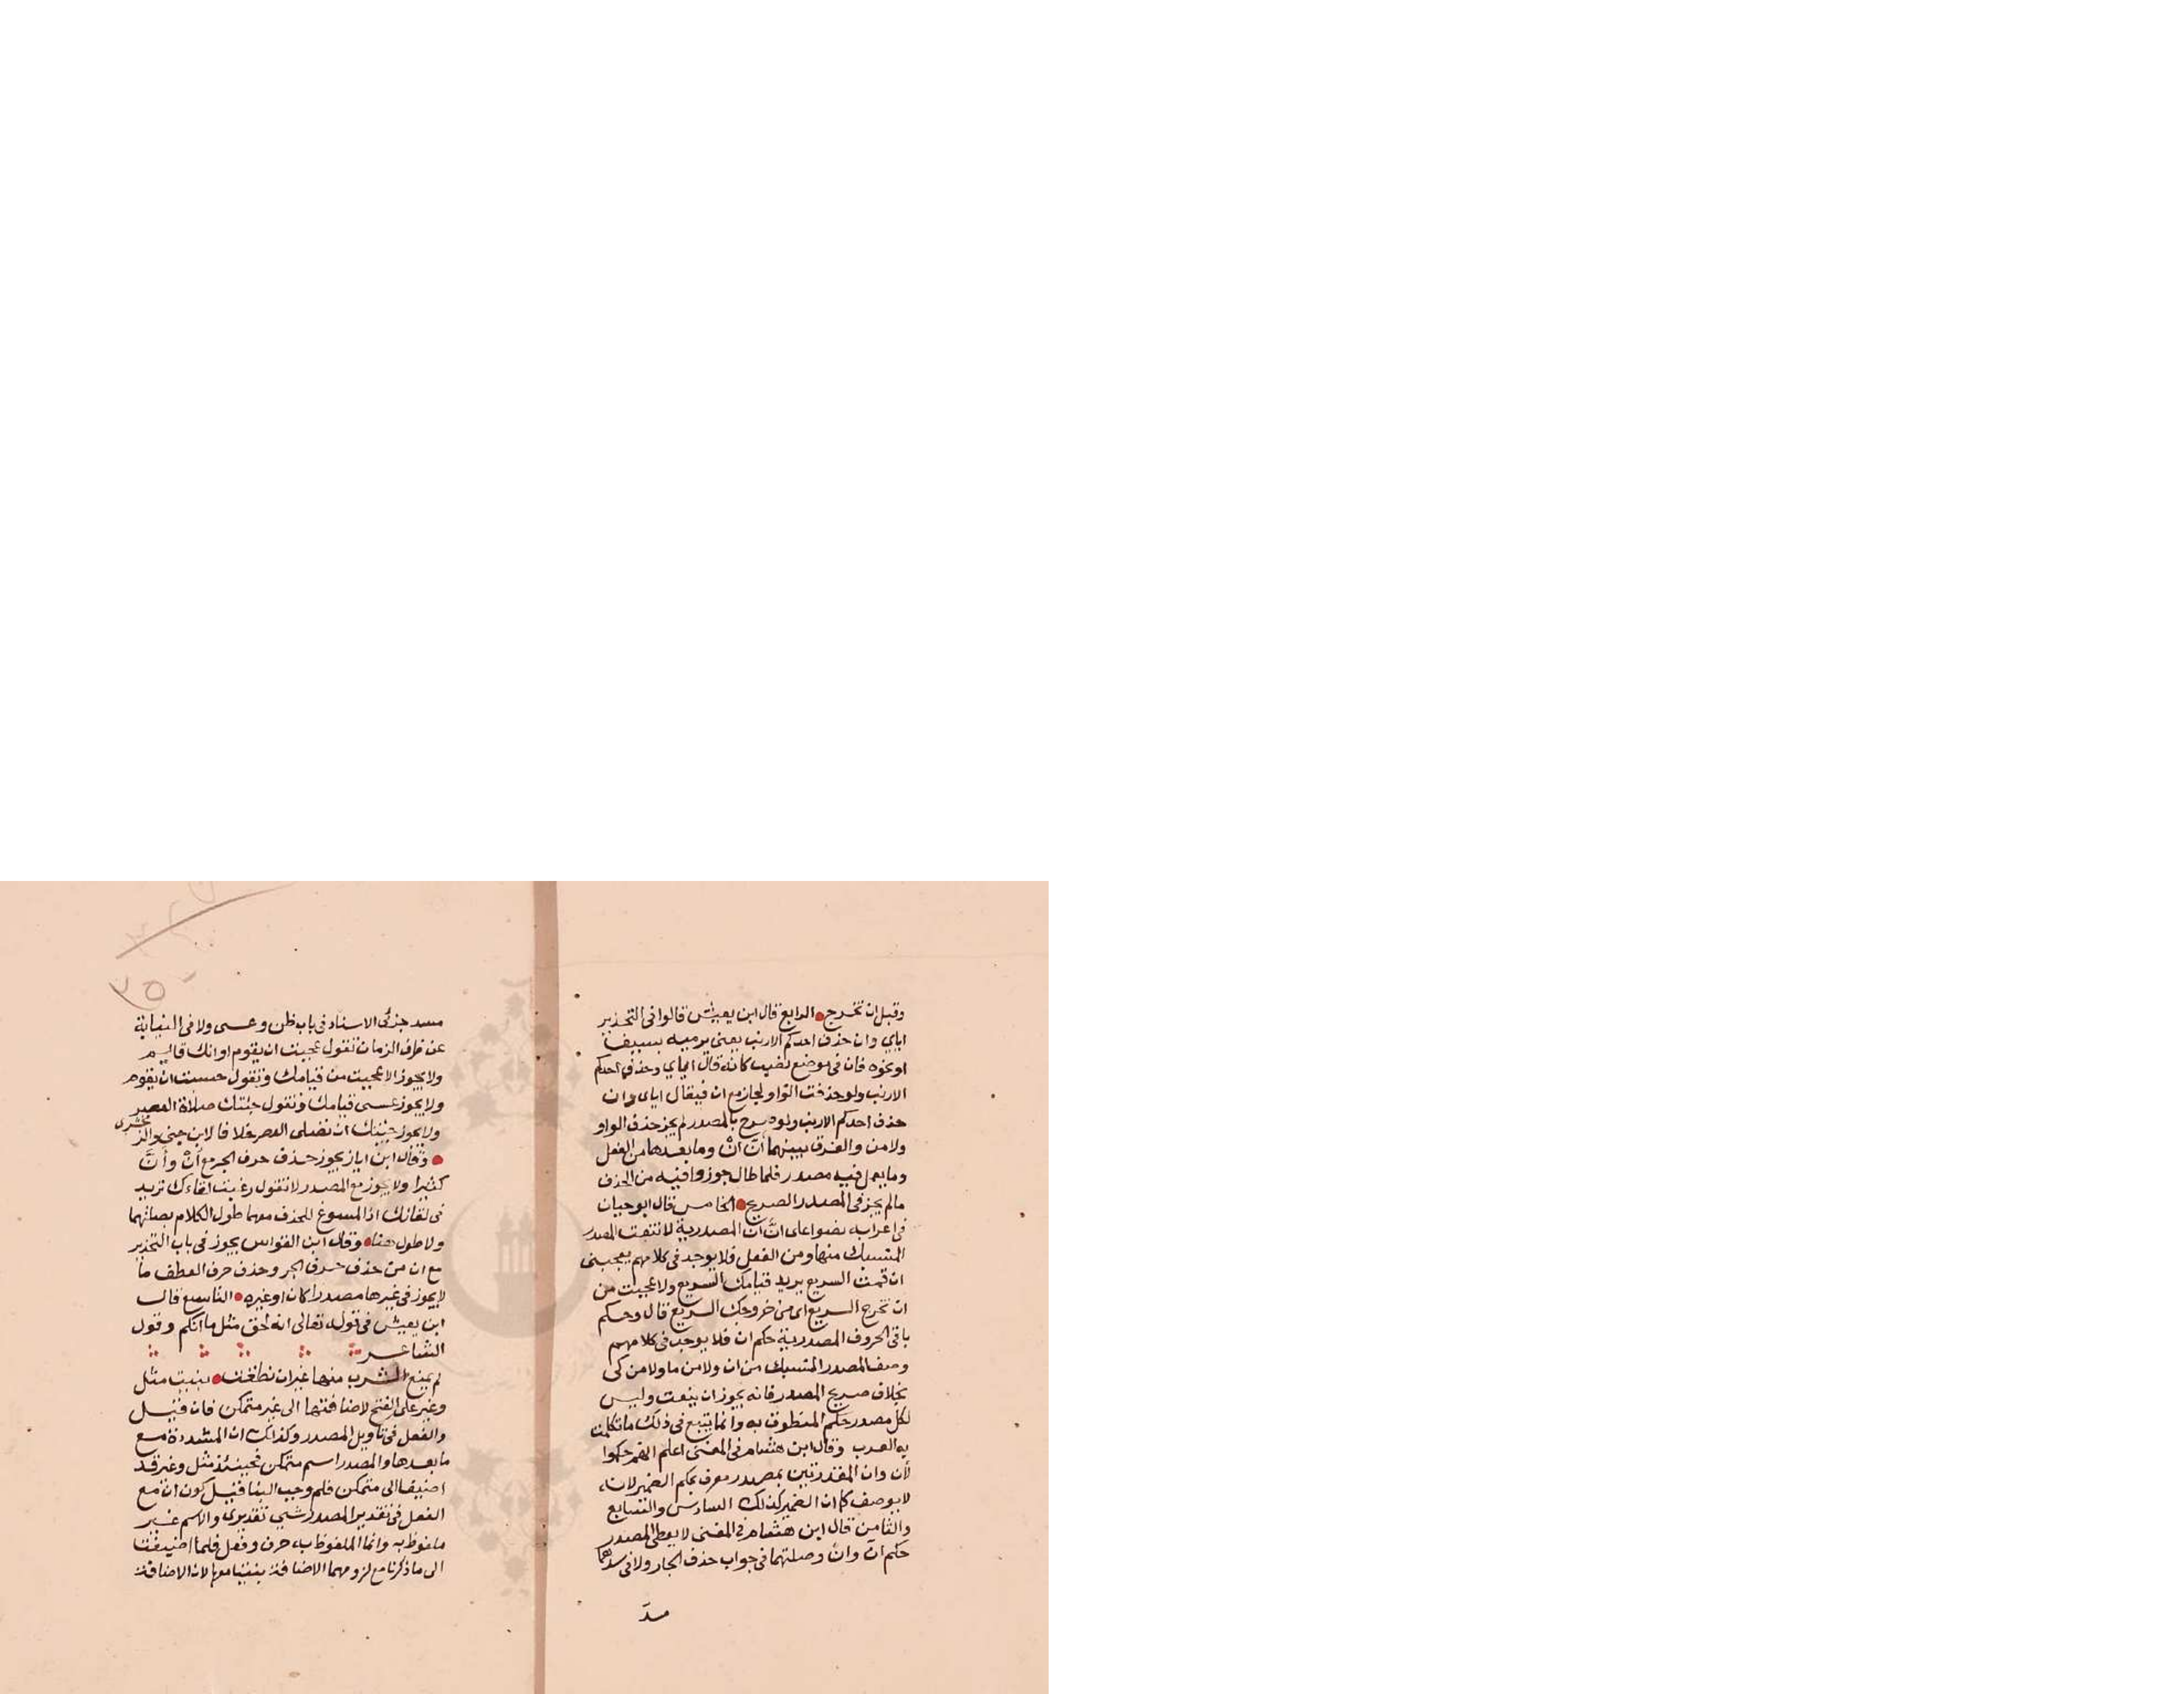 وقبل ان تخرج الرابع قال ابن يعيش قالوا في التحذير
اياي وان حذف احدكم الارنب يعني يرميه بسيف
او نحوه فان في موضع نصب كانه قال اياي وحذف احدكم
الارنب ولو حذفت الواو لجاز مع ان فيقال اياي وان
حذف احدكم الارنب ولو صرح بالمصدر لم يجز حذف الواو
ولا من والفرق بينهما انّ انْ وما بعدها من الفعل
وما يعمل فيه مصدر فلما طال جوزوا فيه من الحذف
مالم يجز في المصدر الصريح الخامس قال ابو حيان
في اعرابه نصوا على انّ انْ المصدرية لا تنعت المصدر
المنسبك منها ومن الفعل فلا يوجد في كلامهم يعجبني
ان قمت السريع يريد قيامك السريع ولا عجبت من
ان تخرج السريع اي من خروجك السريع قال وحكم
باقي الحروف المصدرية حكم ان فلا يوجد في كلامهم
وصف المصدر المنسبك من ان ولا من ما ولا من كي
بخلاف صريح المصدر فانه يجوز ان ينعت وليس
لكل مصدر حكم المنطوق به وانما يتبع في ذلك ما تكلمت
به العرب وقال ابن هشام في المغني اعلم انهم حكموا
لأن وان المقدرتين بمصدر معرف بحكم الضمير لانه
لا يوصف كما ان الضمير كذلك السادس والسابع
والثامن قال ابن هشام في المغني لا يعطى المصدر
حكم ان وانّ وصلتهما في جواب حذف الجار ولا في سدهما
مسدّ
مسد جزئي الاسناد في باب ظن وعسى ولا في النيابة
عن ظرف الزمان تقول عجبت ان يقوم او انك قايم
ولا يجوز الا عجبت من قيامك وتقول حسبت ان يقوم
ولا يجوز عسى قيامك وتقول جئتك صلاة العصر
ولا يجوز جئتك ان تصلي العصر خلافا لابن جني والزمخشري
وقال ابن اياز يجوز حذف حرف الجر مع انْ وانّ
كثيرا ولا يجوز مع المصدر لا تقول رغبت لقاءك تريد
في لقائك اذ المسوغ للحذف معهما طول الكلام بصلتهما
ولا طول هنا وقال ابن القواس يجوز في باب التحذير
مع ان من حذف حرف الجر وحذف حرف العطف ما
لا يجوز في غيرها مصدرا كان او غيره التاسع قال
ابن يعيش في قوله تعالى انه لحق مثل ما انكم وقول
الشاعر
لم يمنع الشرب منها غير ان نطقت بنيت مثل
وغير على الفتح لاضافتها الى غير متمكن فان قيل
والفعل في تاويل المصدر وكذلك ان المشددة مع
ما بعدها والمصدر اسم متمكن فحينئذ مثل وغير قد
اضيفا الى متمكن فلم وجب البنا قيل كون ان مع
الفعل في تقدير المصدر شي تقديري والاسم غير
ملفوظ به وانما الملفوظ به حرف وفعل فلما اضيفت
الى ما ذكرنا مع لزومهما الاضافة بنيتا معها لان الاضافة